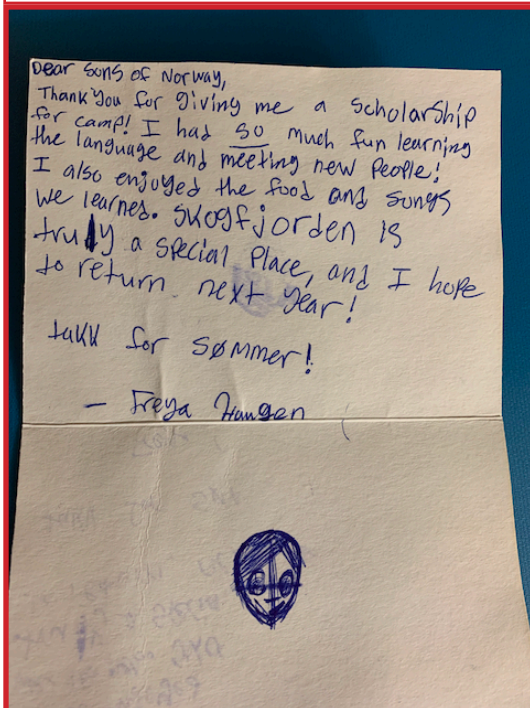 Dear Sons of Norway,
Thank you for giving me a scholarship
for camp! I had so much fun learning
the language and meeting new people!
I also enjoyed the food and songs
we learned. Skogfjorden is
truly a special place, and I hope
to return next year!
takk for sømmer!
— Freya Haugen